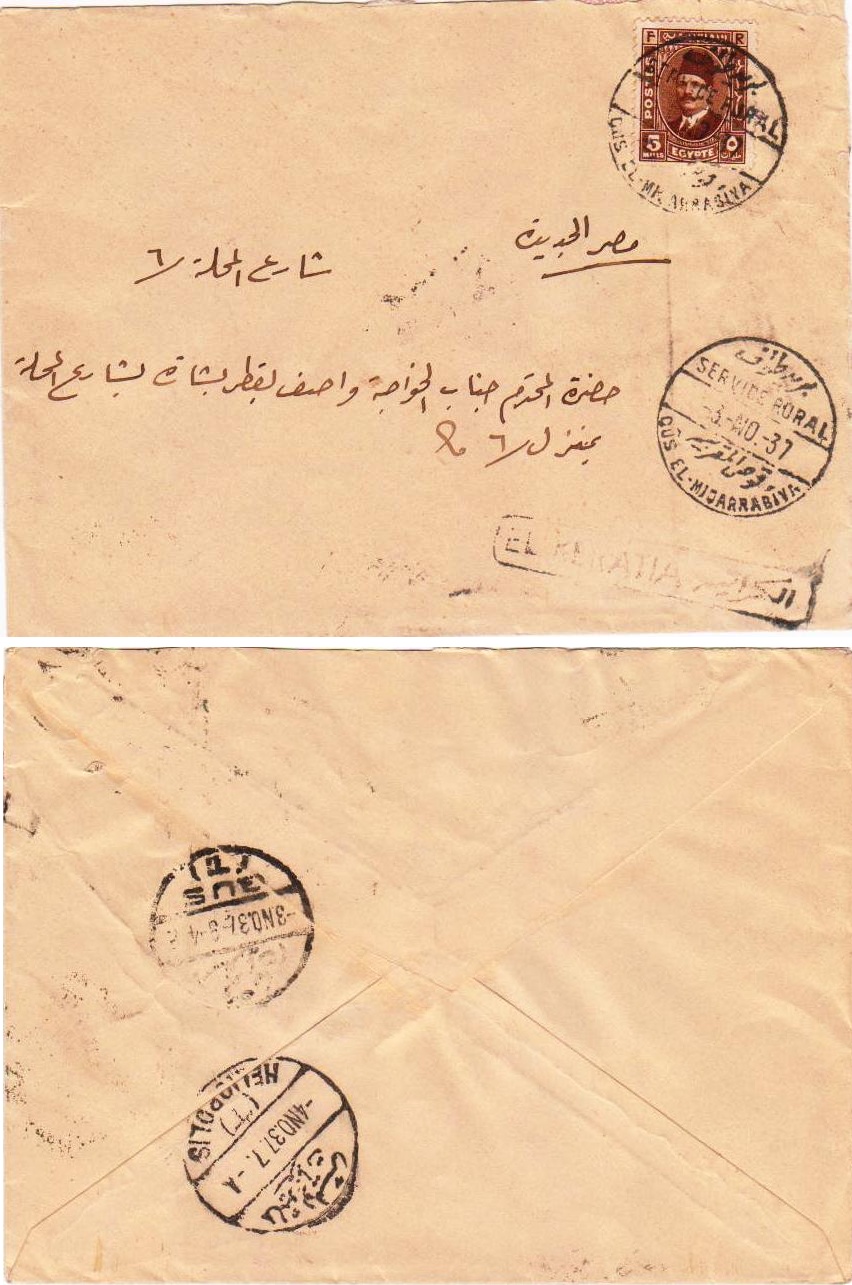 F R
POSTES
5 MILLS EGYPTE ٥
RURAL
QUS EL-M ARRABIYA
مصر الجديدة
شارع المحلة ٦/
حضرة المحترم جناب الخواجة واصف بقطر بشارة بشارع المحلة
بمنزل ٦/
SERVICE RURAL
-3-NO.-37
قوص
QUS EL-MIQARRABIYA
EL KERATIA
QUS
(T)
-3 NO.37
HELIOPOLIS
-4 NO.37.7.-A